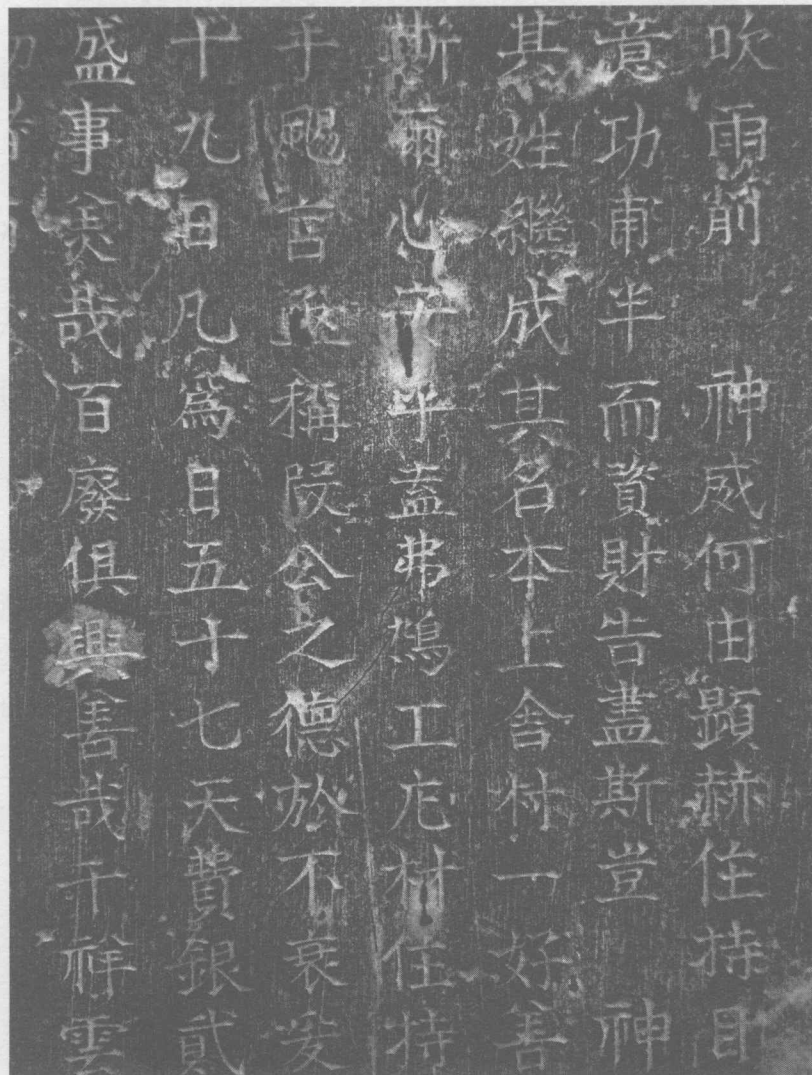 吹雨前 神威何由顕赫住持目
意功甫半而資財告盡斯豈 神
其姓繼成其名本上舍林一好善
斯爾心安乎盖弗鳩工庀材住持
手颺言稱公之德於不衰爰
十九日凡爲日五十七天費銀貳
盛事美哉百廢俱興善哉千祥雲